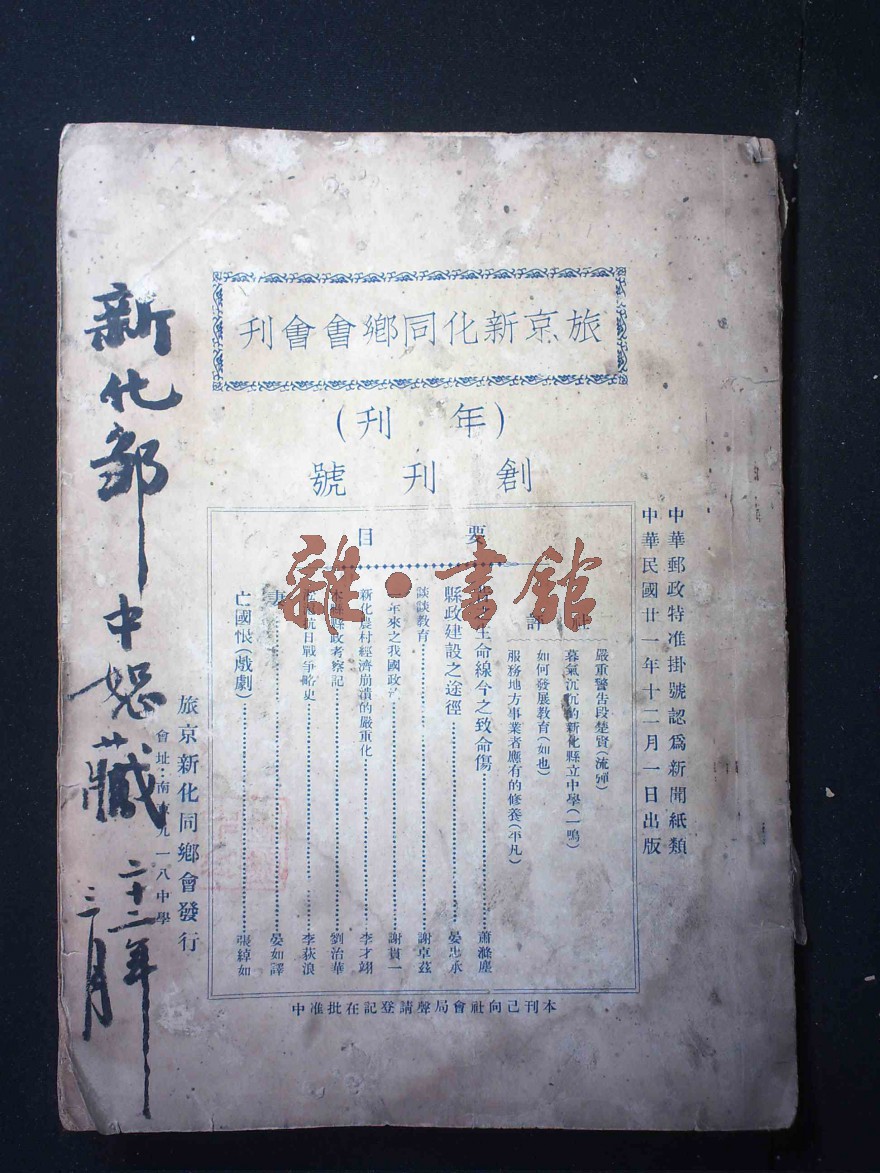 旅京新化同鄉會會刊
(年刊)
創刊號
中華郵政特准掛號認為新聞紙類
中華民國廿一年十二月一日出版
要目
社評
嚴重警告段楚賢(流彈)
暮氣沉沉的新化縣立中學(一鳴)
如何發展教育(如也)
服務地方事業者應有的修養(平凡)
生命線今之致命傷 蕭滌塵
縣政建設之途徑 晏忠承
談談教育 謝卓茲
年來之我國政 謝貫一
新化農村經濟崩潰的嚴重化 李才翊
縣政考察記 劉治華
抗日戰爭略史 李荻浪
妻 晏如譯
亡國恨(戲劇) 張綽如
旅京新化同鄉會發行
會址:南京九一八中學
本刊已向社會局聲請登記在批准中
新化鄒中恕藏
二十二年
三月
雜·書館